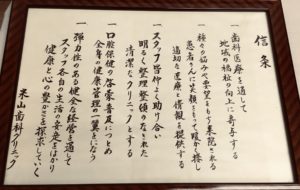 信条
一 歯科医療を通して
地域の福祉の向上に寄与する
一 種々の悩みや要望をもち来院される
患者さんに笑顔をもって暖かく接し
適切な医療と情報を提供する
一 スタッフ皆仲よく助け合い
明るく整理整頓のなされた
清潔なクリニックとする
一 口腔保健の啓蒙普及につとめ
全身の健康管理の一翼をになう
一 弾力性のある健全な経営を通して
スタッフ各自の生活の安定をはかり
健康と心の豊かさを探求していく
米山歯科クリニック